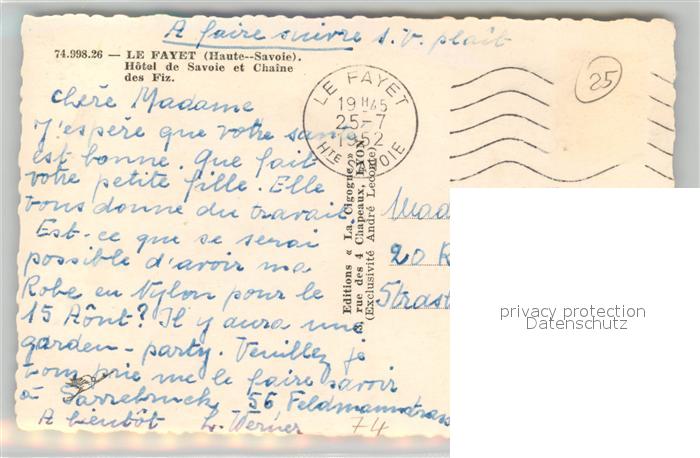 A faire suivre s. v. plaît
74.998.26 — LE FAYET (Haute--Savoie).
Hôtel de Savoie et Chaîne
des Fiz.
LE FAYET
19H45
25-7
1952
HTE SAVOIE
25
Chère Madame
J'espère que votre santé
est bonne. Que fait
votre petite fille. Elle
vous donne du travail.
Est-ce que se serai
possible d'avoir ma
Robe en Nylon pour le
15 Aôut? Il y aura une
garden-party. Veuillez je
vous prie me le faire savoir
à Sarrebruck 56, Feldmannstrass
A bientôt L. Werner
74
Editions « La Cigogne »
3, rue des 4 Chapeaux, LYON
(Exclusivité André Leconte)
Mad
20 R
Strast
privacy protection
Datenschutz